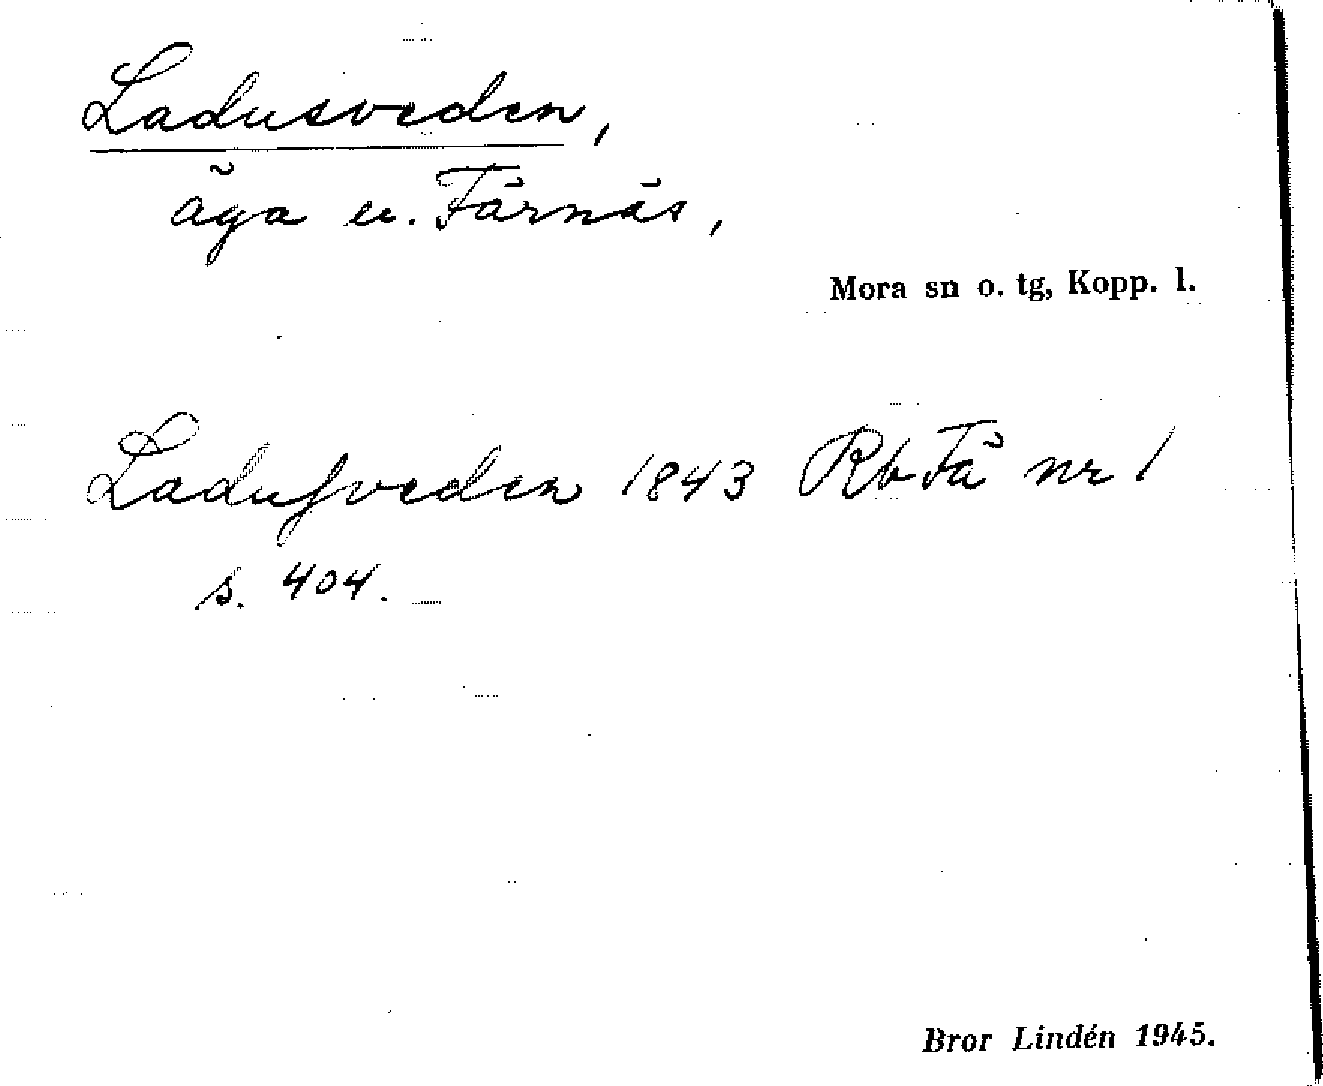 Ladusveden,
äga u. Färnäs,
Mora sn o. tg, Kopp. l.
Laduſveden 1843 Rb Fä nr 1
s. 404.
Bror Lindén 1945.